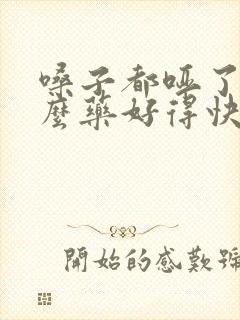 嗓子都哑了
麼藥好得快
開始的感歎號